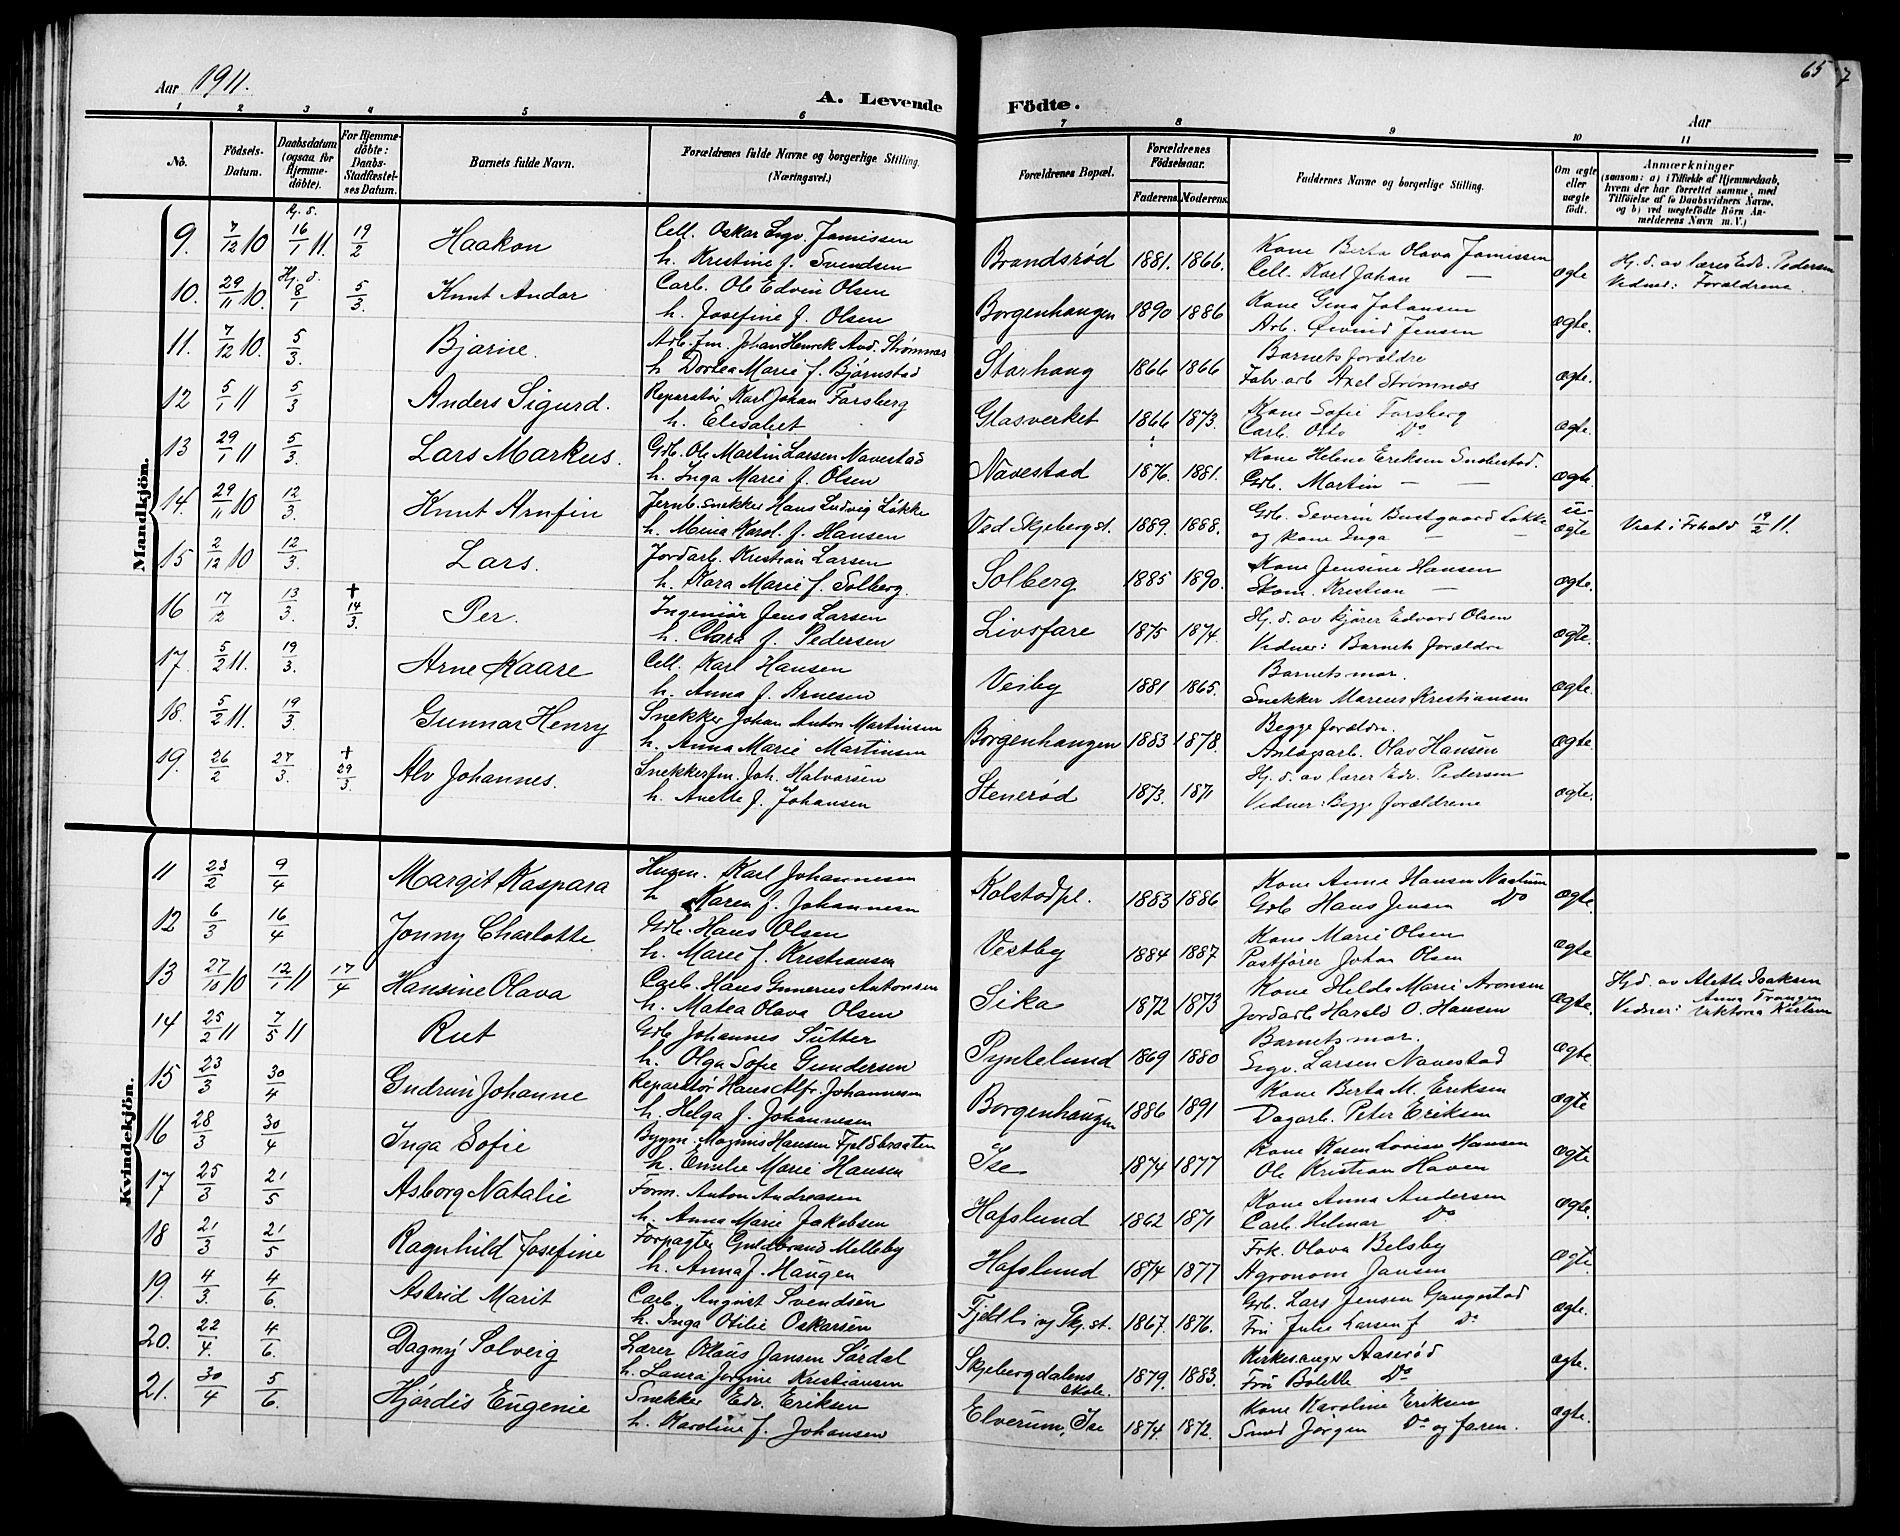 65 7
Aar 1911.
A. Levende Födte.
Aar
1 2 3 4 5 6 7 8 9 10 11
Nö.
Födsels-Datum.
Daabsdatum (ogsaa for Hjemmedöbte).
For Hjemmedöbte: Daabs-Stadfæstelses Datum.
Barnets fulde Navn.
Forældrenes fulde Navne og borgerlige Stilling. (Næringsvei.)
Forældrenes Bopæl.
Forældrenes Födselsaar.
Faderens. Moderens.
Faddernes Navne og borgerlige Stilling.
Om ægte eller uægte födt.
Anmærkninger
(saasom: a) i Tilfælde af Hjemmedaab, hvem der har forrettet samme, med Tilföielse af to Daabsvidners Navne. og b) ved uægtefödte Börn Anmelderens Navn m. V.)
Mandkjön.
9. 7/12 10 Hj. d. 16/1 11. 19/2 Haakon Cell. Oskar Sigv. Jamissen Brandsrød 1881. 1866. Kone Berta Olava Jamissen ægte Hj. d. av lærer Edv. Pedersen
h. Kristine f. Svendsen Cell. Karl Johan — Vidner: Forældrene.
10. 29/11 10. Hj. d. 8/1 5/3 Knut Andor Carb. Ole Edvin Olsen Borgenhaugen 1890 1886 Kone Gina Johansen ægte.
h. Josefine f. Olsen Arb. Øivind Jensen
11. 7/12 10. 5/3 Bjarne. Arb. fm. Johan Henrik And. Strømnæs Starhaug 1866 1866 Barnets forældre ægte.
h. Dortea Marie f. Bjørnstad Fabr. arb Axel Strømnæs
12 5/1 11 5/3 Anders Sigurd. Reparatør Karl Johan Forsberg Glasverket 1866 1873. Kone Sofie Forsberg ægte.
h. Elisabet Carb. Otto Do
13 29/1 11 5/3 Lars Markus. Grb. Ole Martin Larsen Navestad Navestad 1876. 1881. Kone Helene Eriksen Snobestad. ægte.
h. Inga Marie f. Olsen Grb. Martin — —
14. 29/11 10 12/3. Knut Arnfin Jernb. snekker Hans Ludvig Løkke Ved Skjeberg st. 1889. 1888. Grb. Severin Bustgaard Løkke u-ægte Viet i Frhald 19/2 11.
h. Mina Karol. f. Hansen og kone Inga — —
15 2/12 10 12/3. Lars. Jordarb. Kristian Larsen Solberg 1885 1890. Kone Jensine Hansen ægte.
h. Kara Marie f. Solberg. Stom. Kristian —
16 17/2 13/3. + 14/3. Per. Ingeniør Jens Larsen Livsfare 1875 1874. Hj. d. av kjører Edvard Olsen ægte.
h. Clara f. Pedersen Vidner: Barnets forældre
17. 5/2 11. 19/3. Arne Kaare Cell. Karl Hansen Veiby 1881 1865. Barnets mor. ægte.
h. Anna f. Arnesen Snekker Marius Kristiansen
18. 5/2 11. 19/3. Gunnar Henry Snekker Johan Anton Martinsen Borgenhaugen 1883 1878. Begge forældre. ægte.
h. Anna Marie Martinsen Anlægsarb. Olav Hansen
19. 26/2 27/3. + 29/3. Alv Johannes. Snekkerfm. Joh. Halvorsen Stenerød 1873. 1871 Hj. d. av lærer Edv. Pedersen ægte.
h. Anette f. Johansen Vidner: Begge forældrene
Kvindekjön.
11 23/2 9/4 Margit Kaspara Husm. Karl Johannesen Kolstadpl. 1883 1886 Kone Anna Hansen ægte.
h Maren f. Johannesen Grb Hans Jensen Do
12 6/3 16/4 Jonny Charlotte Grb. Hans Olsen Vestby 1884 1887 Kone Marie Olsen ægte
h. Marie f. Kristiansen Postfører Johan Olsen
13 27/10 10 12/1 11 17/4 Hansine Olava Carb. Hans Gunerius Antonsen Sika 1872 1873 Kone Hilda Marie Aronsen ægte. Hjd. av Alette Isaksen
h. Matea Olava Olsen Jordarb Harald O. Hansen Vidner: Anna Trangen Viktoria Karlsen
14 25/2 11 7/5 11 Rut Grb Johannes Sutter Pyntelund 1869 1880 Barnets mor. ægte
h. Olga Sofie Gundersen Sigv. Larsen Navestad
15 23/3 30/4 Gudrun Johanne Reparatør Hans Alfr. Johannesen Borgenhaugen 1886 1891 Kone Berta M. Eriksen ægte
h. Helga f. Johannesen Dagarb. Peter Eriksen
16 28/3 30/4 Inga Sofie Bygm. Magnus Hansen Fjeldbraaten Ise 1874 1877 Kone Karen Lovise Hansen ægte
h. Emelie Marie Hansen Ole Kristian Haven
17 25/3 21/5 Asborg Natalie Form. Anton Andreasen Hafslund 1862 1871 Kone Anna Andersen ægte.
h. Anna Marie Jakobsen Carb. Helmar Do
18 21/3 21/5 Ragnhild Josefine Forpagter Guldbrand Melleby Hafslund 1874 1877 Frk. Olava Belsby ægte.
h. Anna f. Haugen Agronom Jansen
19. 4/3. 4/6. Astrid Marit Carb. August Svendsen Fjeldli v/ Skj. st. 1867. 1876. Grb. Lars Jensen Gangestad ægte.
h. Inga Otilie Oskarsen Fru Julie Larsen f Do
20. 22/4. 4/6. Dagny Solveig Lærer Olaus Jansen Sørdal Skjebergdalens skole. 1879. 1883. Kirkesanger Aaserød ægte.
h. Laura Jørgine Kristiansen Fru Bolette Do
21. 30/4 5/6. Hjørdis Eugenie Snekker Edv. Eriksen Elverum, Ise 1874. 1872. Kone Karoline Eriksen ægte.
h. Karoline f. Johansen Smed Jørgen Do og faren.